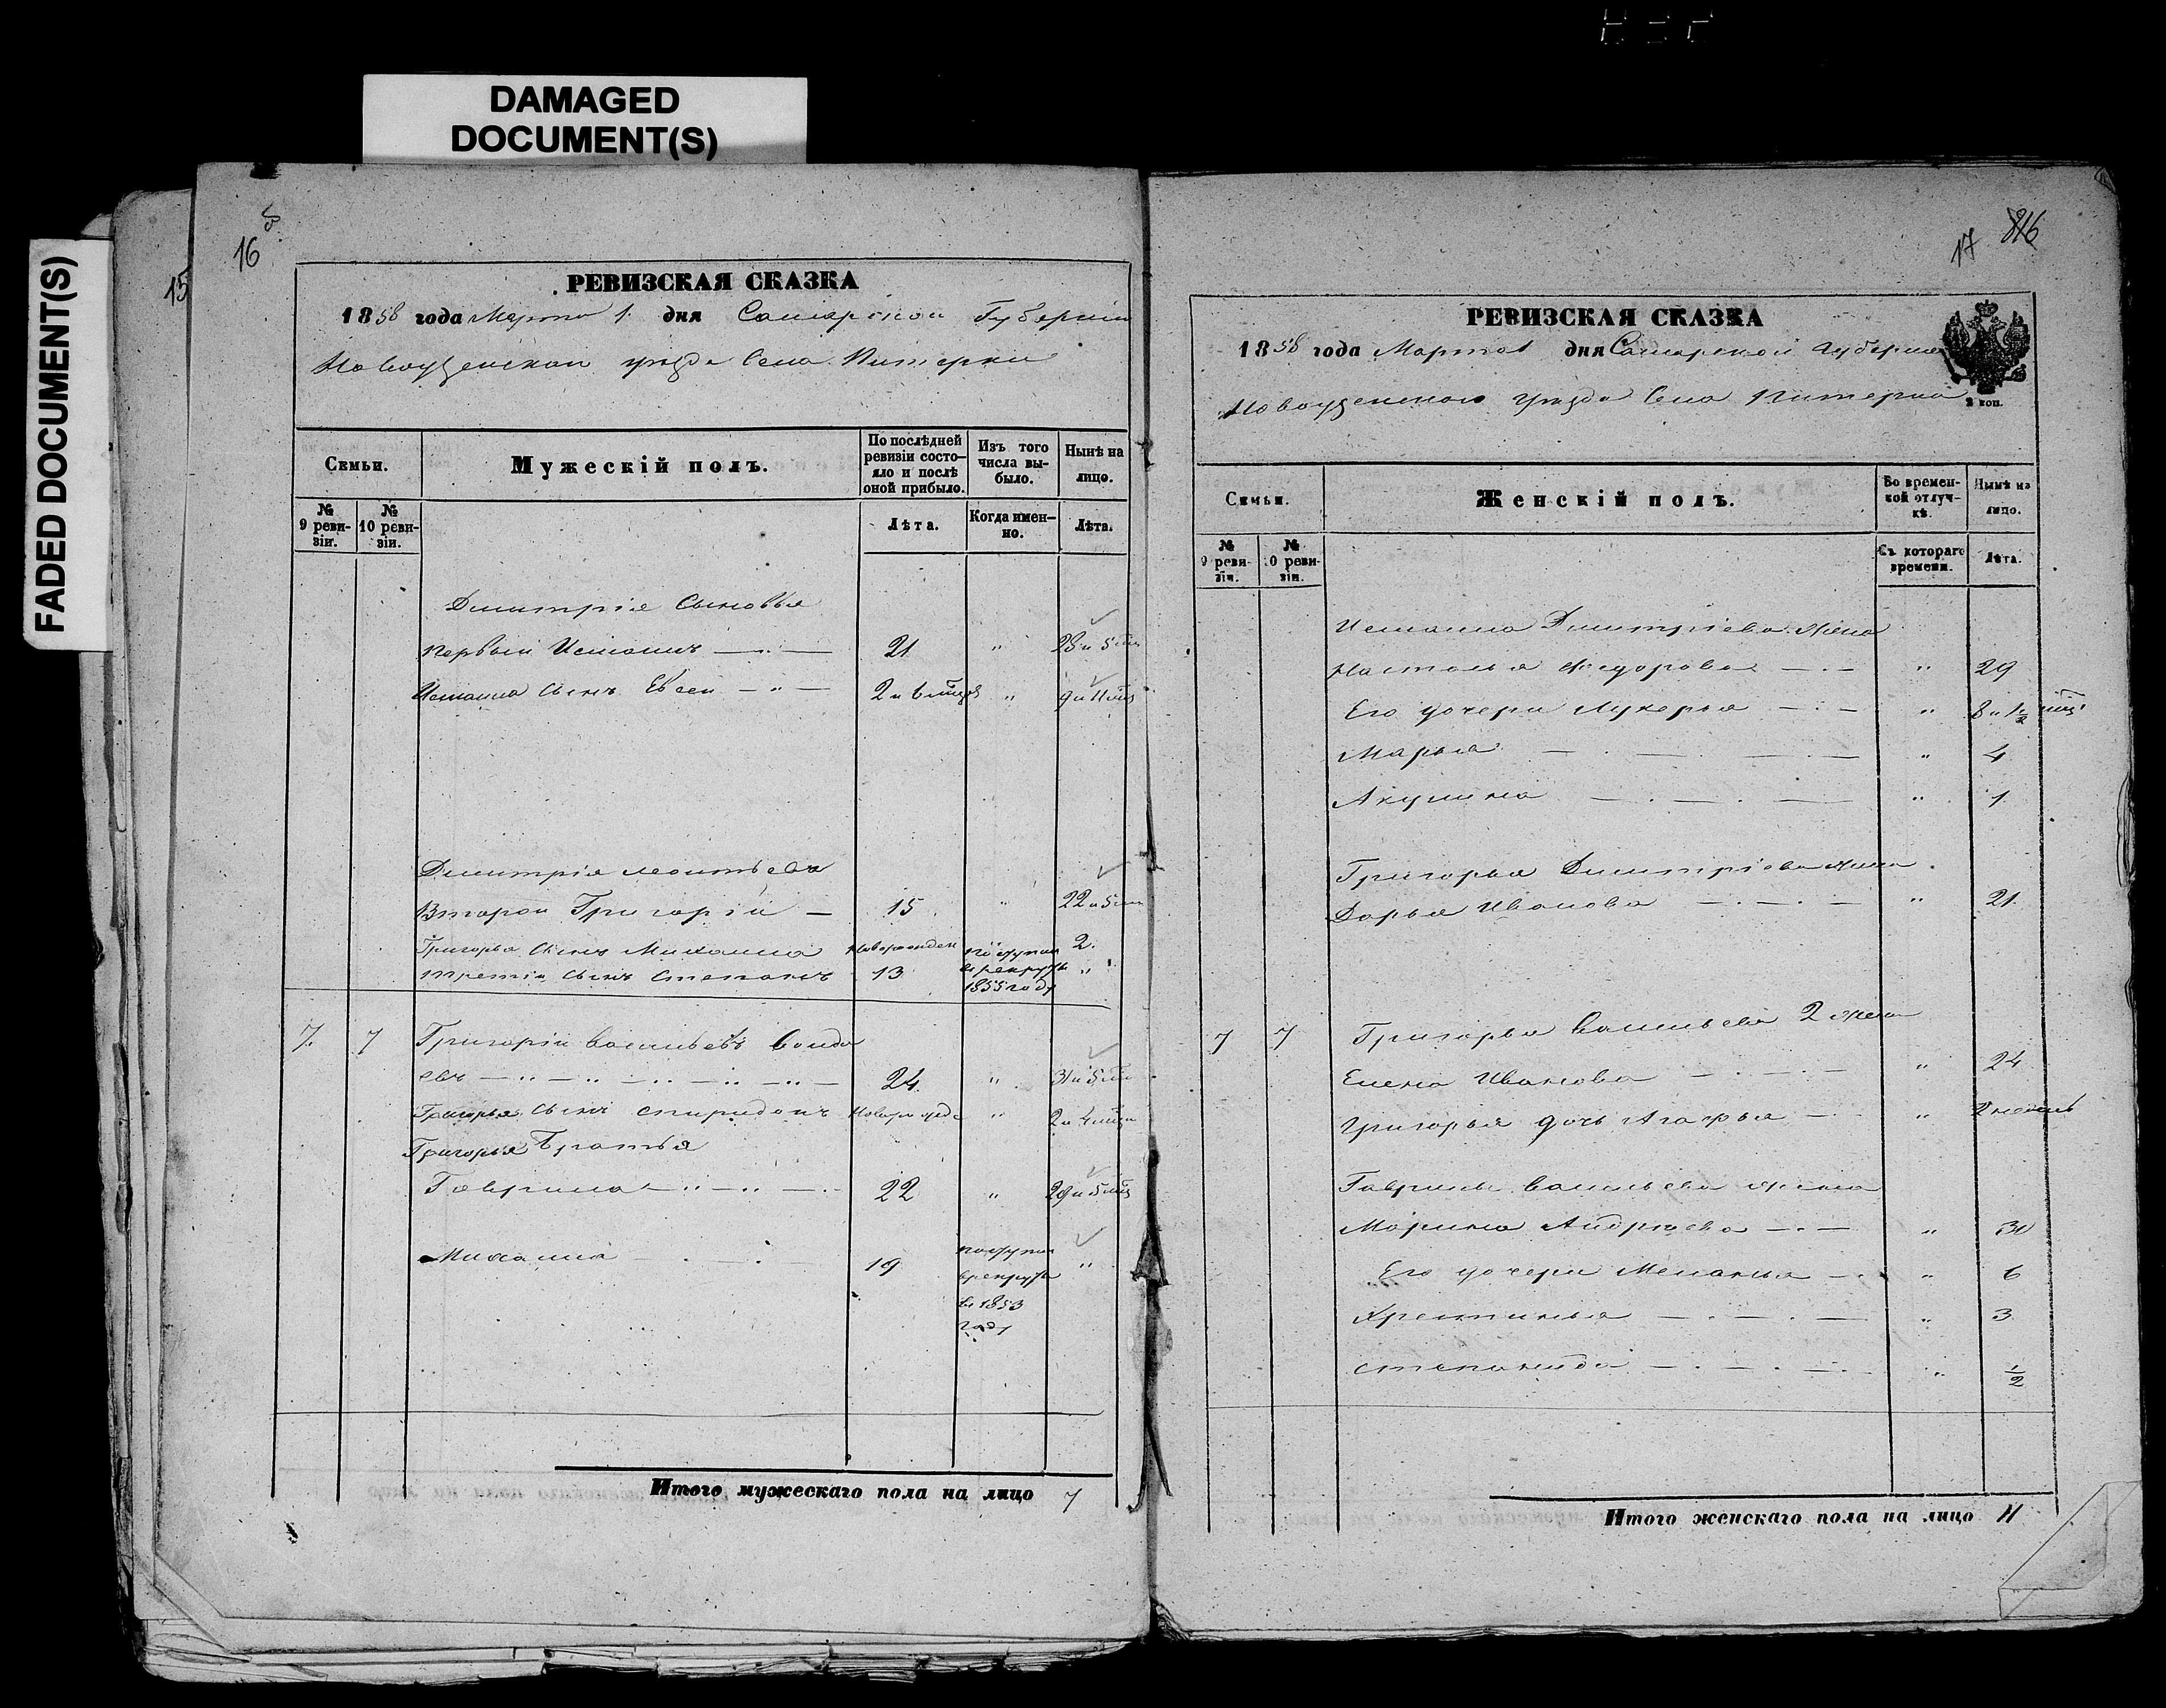 DAMAGED
DOCUMENT(S)
FADED DOCUMENT(S)
15
16
РЕВИЗСКАЯ СКАЗКА
1858 года Марта 1 дня Самарской Губернии
Новоузенскаго уезда Села Питерки
Семьи.
Мужескій полъ.
По послѣдней ревизіи состо-яло и послѣ оной прибыло.
Изъ того числа вы-было.
Нынѣ на лицо.
№ 9 реви-зіи.
№ 10 реви-зіи.
Лѣта.
Когда имен-но.
Лѣта.
Дмитрія Сыновья
первый — " — 21 "
сынъ Евсей — " — 2 и "
Дмитрія
Второй Григорій — 15 " 22 и 5
Григорья Сынъ Михаила новорожден 2.
третій сынъ Степанъ 13 поступил в рекруты 1855 году "
7. 7 Григорій Васильевъ
евъ — " — " — " — " — " — 24 " 31 и 5
Григорья Сынъ Спиридонъ новорожде " 2 и 4
Григорья Братья
Гаврила — " — " — 22 " 29 и 5
Михаила 19 поступил в рекруты в 1853 году "
Итого мужескаго пола на лицо 7
17 816
РЕВИЗСКАЯ СКАЗКА
1858 года Марта 1 дня Самарской Губернии
Новоузенскаго уезда Села Питерка
2 коп.
Семьи.
Женскій полъ.
Во времен-ной отлуч-кѣ.
Нынѣ на лицо.
№ 9 реви-зіи.
№ 10 реви-зіи.
Съ котораго времени.
Лѣта.
Дмитріева жена
Настасья Федорова — " — " 29
Его дочери Лукерья — " — " 8 и 1½
Марья " 4
Акулина " 1.
Григорья Дмитріева жена
Дарья Иванова " 21.
7 7 Григорья Васильева 2 жена
Елена Иванова " 24
Григорья дочь Агафья "
Гаврилы Васильева жена
Марина Андреева — " —
Его дочери Меланья — " 6
Хрестинья " 3
Степанида " ½
Итого женскаго пола на лицо 11